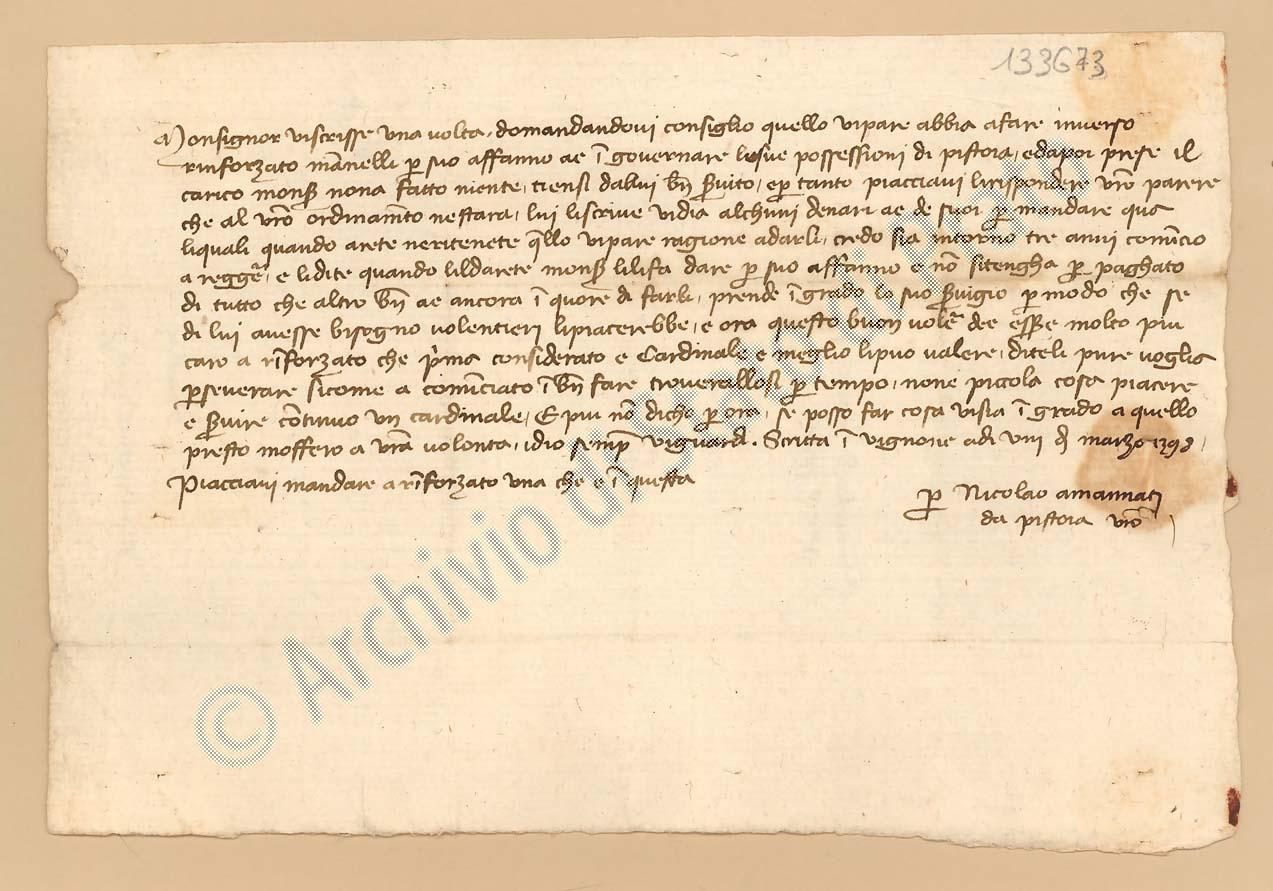 133673
Monsignor viscrisse una volta, domandandovi consiglio quello vipare abbia afare inverso
rinforzato mānelli p̱ suo affanno ae ī governare lesue possessioni di pistoia, edapoi prese il
carico mons̄ nona fatto niente, tiensi dalui bn̄ s̄vito, ep̱ tanto piacciavi lirispondere vrō parere
che al vrō ordinamto nestara, lui liscrive vidia alchuni denari ae de suoi p̱ mandare qua
liquali quando arete neritenete q̄llo vipare ragione adarli, credo sia intorno tre anni comīcio
a reggē, e lidite quando lildarete mons̄ lilifa dare p̱ suo affanno e nō sitengha p̱ paghato
di tutto che altro bn̄ ae ancora ī quore di farli, prende īgrado lo suo s̄vigio p̱ modo che se
di lui avesse bisogno volentieri lipiacerebbe, e ora questo buon volē dee ess̄e molto piu
caro a rīforzato che p̄ma considerato e Cardinale e meglio lipuo valere, diteli pure voglia
p̱severare sicome a comīciato ī bn̄ fare troverallosi p̱ tempo, none picola cosa piacere
e s̄vire cōtinuo un cardinale, E piu nō dicho p̱ ora, se posso far cosa visia ī grado a quello
presto moffero a vrā volonta, idio semp̱ viguardi. Scritta ī vignone adi viii di marzo 1398,
Piacciavi mandare a rīforzato una che e ī questa
p̱ Nicolao amannati
da pistoia vrō
© Archivio di